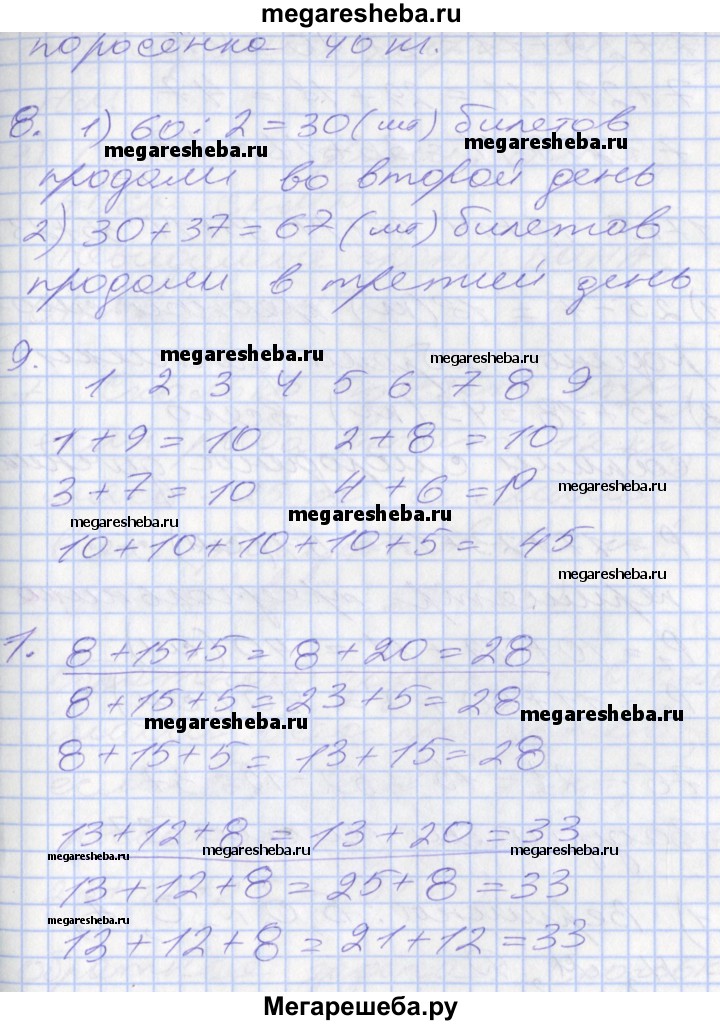 megaresheba.ru
поросёнка 40 кг.
8. 1) 60 : 2 = 30 (шт) билетов
megaresheba.ru megaresheba.ru
продали во второй день
2) 30 + 37 = 67 (шт) билетов
продали в третий день
9. megaresheba.ru megaresheba.ru
1 2 3 4 5 6 7 8 9
1 + 9 = 10 2 + 8 = 10
3 + 7 = 10 4 + 6 = 10 megaresheba.ru
megaresheba.ru megaresheba.ru
10 + 10 + 10 + 10 + 5 = 45
megaresheba.ru
1. 8 + 15 + 5 = 8 + 20 = 28
8 + 15 + 5 = 23 + 5 = 28
megaresheba.ru megaresheba.ru
8 + 15 + 5 = 13 + 15 = 28
13 + 12 + 8 = 13 + 20 = 33
megaresheba.ru megaresheba.ru megaresheba.ru
13 + 12 + 8 = 25 + 8 = 33
megaresheba.ru
13 + 12 + 8 = 21 + 12 = 33
Мегарешеба.ру